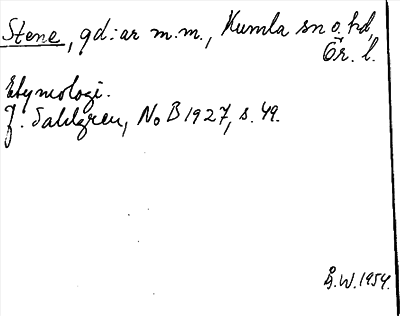 Stene, gd:ar m.m., Kumla sn o. hd,
Ör. l.
Etymologi.
J. Sahlgren, NoB 1927, s. 49.
Å.W. 1954.